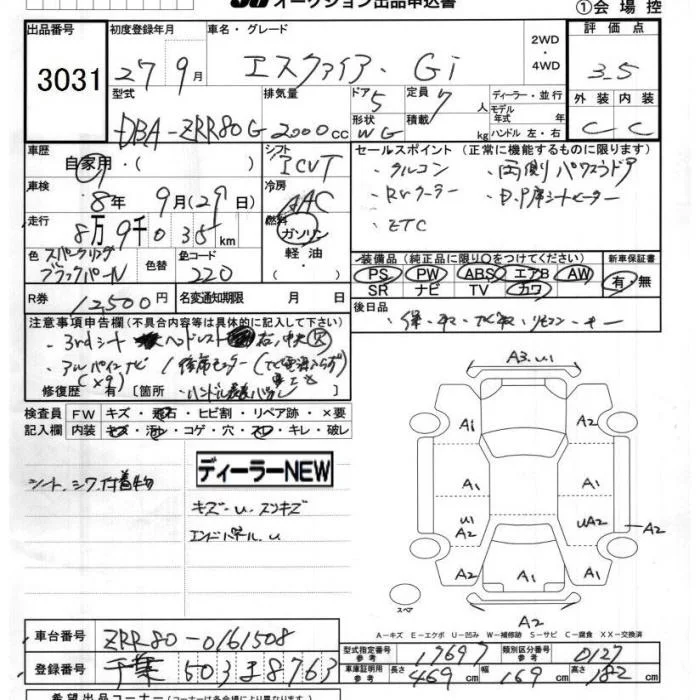 オークション出品申込書
①会場控
出品番号
3031
初度登録年月
27 9月
車名・グレード
エスクァイア・Gi
2WD
・
4WD
評価点
3.5
外装 内装
C C
型式
DBA-ZRR80G
排気量
2000cc
ドア 5
形状 WG
定員 7人
積載 kg
ディーラー・並行
モデル年式 年
ハンドル 左・右
車歴
自家用・( )
シフト
ICVT
セールスポイント (正常に機能するものに限り)
・クルコン ・両側パワスラドア
・Rrクーラー ・D.P席シートヒーター
・ETC
車検
8年 9月(29日)
冷房
AAC
走行
8万9千035km
燃料
ガソリン
軽油
・
装備品 (純正品に限り○をつけてください)
PS PW ABS エアB AW
SR ナビ TV カワ
新車保証書
有・無
色 スパークリング
ブラックパール
色替
色コード
220
R券 12,500円
名変通知期限 月 日
後日品
・保・取・ナビ取・リモコン・キー
注意事項申告欄 (不具合内容等は具体的に記入して下さい)
・3rdシート ヘッドレスト
・アルパインナビ
(X9)
修復歴 有 [箇所
検査員 FW キズ・飛石・ヒビ割・リペア跡・×要
記入欄 内装 キズ・汚れ・コゲ・穴・スレ・キレ・破レ
ディーラーNEW
シート、シワ、付着物
キズ・U・スリキズ
エンドパネル.U
A3.U1
A1 A2
A1 A1
U1 UA2 A2
A2 A2
A2 A1
スペア
A2
A-キズ E-エクボ U-凹み W-補修跡 S-サビ C-腐食 XX-交換済
車台番号 ZRR80-0161508
登録番号 千葉 503 ま 8763
型式指定番号 参考 17697
類別区分番号 参考 0127
車庫証明用 参考 長さ 469cm 幅 169cm 高さ 182cm
希望出品コーナー